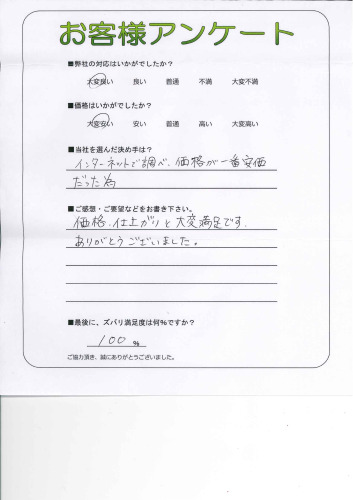 お客様アンケート
■弊社の対応はいかがでしたか？
大変良い 良い 普通 不満 大変不満
■価格はいかがでしたか？
大変安い 安い 普通 高い 大変高い
■当社を選んだ決め手は？
インターネットで調べ、価格が一番安価
だった為
■ご感想・ご要望などをお書き下さい。
価格、仕上がりと大変満足です。
ありがとうございました。
■最後に、ズバリ満足度は何％ですか？
100 %
ご協力頂き、誠にありがとうございました。